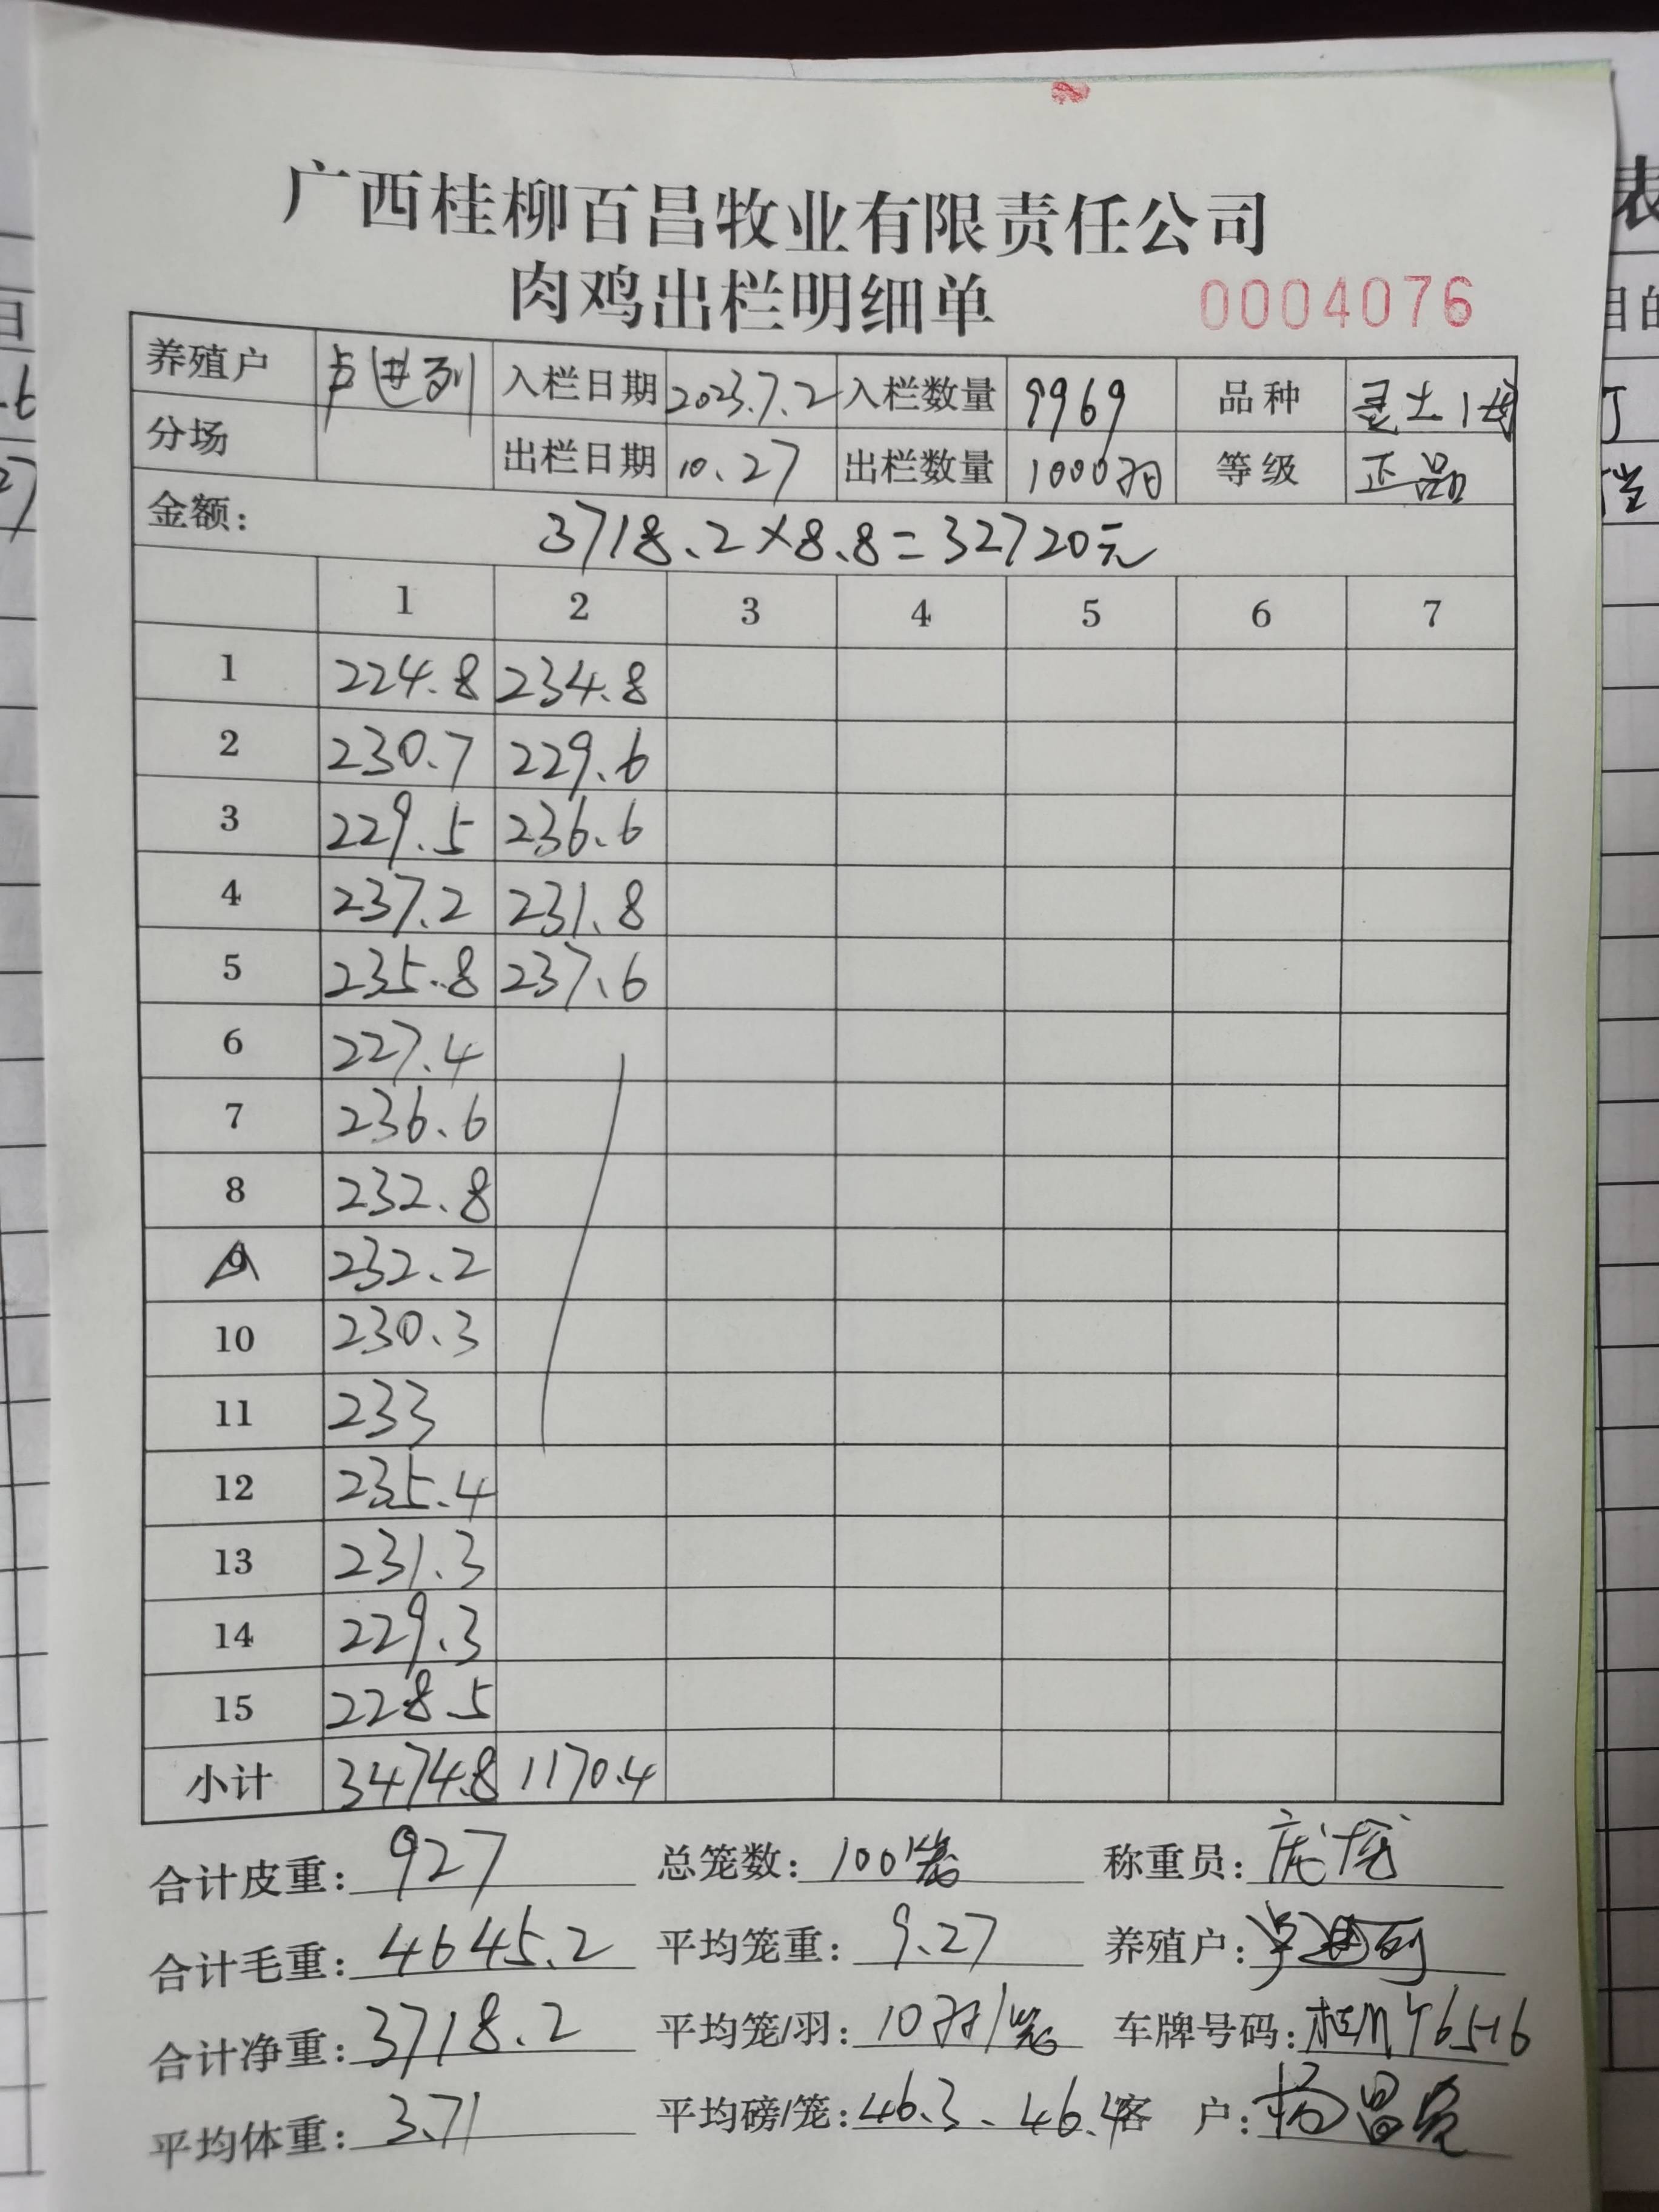 广西桂柳百昌牧业有限责任公司
肉鸡出栏明细单 0004076
养殖户 入栏日期 2023.7.2 入栏数量 9969 品种 灵土1母
分场 出栏日期 10.27 出栏数量 1000羽 等级 正品
金额: 3718.2×8.8=32720元
1 2 3 4 5 6 7
1 224.8 234.8
2 230.7 229.6
3 229.5 236.6
4 237.2 231.8
5 235.8 237.6
6 227.4
7 236.6
8 232.8
9 232.2
10 230.3
11 233
12 235.4
13 231.3
14 229.3
15 228.5
小计 3474.8 1170.4
合计皮重: 927 总笼数: 100笼 称重员:
合计毛重: 4645.2 平均笼重: 9.27 养殖户:
合计净重: 3718.2 平均笼/羽: 10羽/笼 车牌号码: 桂MY6516
平均体重: 3.71 平均磅/笼: 46.3、46.4 客 户: